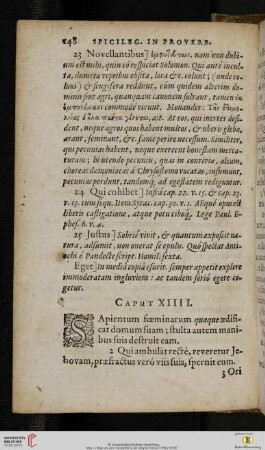 148 SPICILEG. IN PROVERB.
23 Novellantibus] nam non dubi-
um est mihi, quin eò respiciat Solomon. Qui aurè incul-
ta, dumeta vepribus obsita, loca &c. coluit; (unde colo-
ni) & frugifera reddidit, cum quidem alterim do-
mini sint agri, quanquam canonem solvant, tamen in
commodè vivunt. Menander:
At eos, qui inertes desi-
dent, neque agros quos habent multos, & uberis gleba,
arant, seminant, &c. fame perire necessum. Similiter,
qui pecunias habent, neque exercent honestam merca-
turam; hi utendo pecuniis, quas in convivia, aleam,
choreas dæmoniacas à Chrysostomo vocatas, insumunt,
pecunias perdunt, tandemq; ad egestatem rediguntur.
24 Qui cohibet] Infrà cap. 22. v. 15. & cap. 23.
v. 13. cum sequ. Item Syrac. cap. 30. v. 1. Æquè opus est
liberis castigatione, atque potu ciboq́;. Lege Paul. E-
phes. 6. v. 4.
25 Justus] Sobriè vivit, & quantum exposcit na-
tura, adsumit, non onerat se epulis. Quò spectat Anti-
ochi è Pandecte script. Homil. sexta.
Eget] In media copia esurit. semper appetit explere
immoderatam ingluviem: ac tandem seriò egere co-
getur.
CAPUT XIIII.
SApientum fœminarum quæque ædifi-
cat domum suam; stulta autem mani-
bus suis destruit eam.
2 Qui ambulat rectè, reveretur Je-
hovam, præfractus verò viis suis, spernit eum.
3 Ori